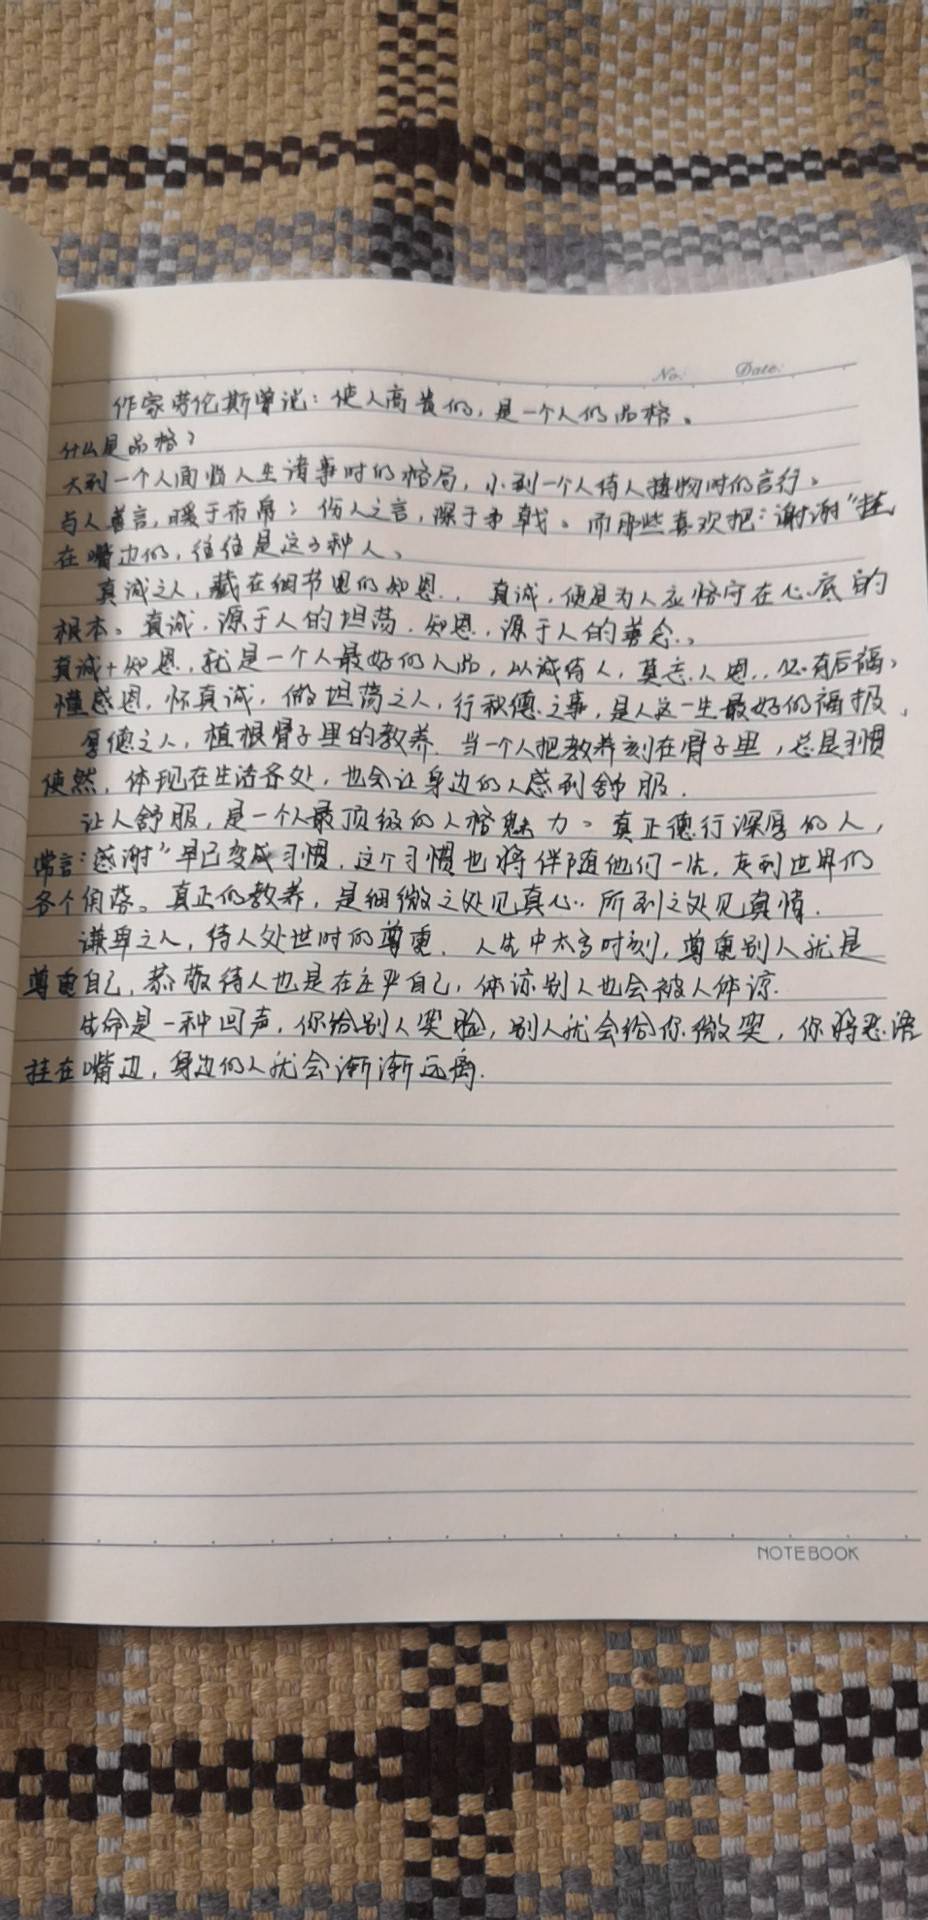 No: Date:
作家劳伦斯曾说：使人高贵的，是一个人的品格。
什么是品格？
大到一个人面临人生诸事时的格局，小到一个人待人接物时的言行。
与人善言，暖于布帛；伤人之言，深于矛戟。而那些喜欢把“谢谢”挂
在嘴边的，往往是这3种人。
真诚之人，藏在细节里的知恩。真诚，便是为人应恪守在心底的
根本。真诚，源于人的坦荡，知恩，源于人的善念。
真诚+知恩，就是一个人最好的人品，以诚待人，莫忘人恩，必有后福，
懂感恩，怀真诚，做坦荡之人，行积德之事，是人这一生最好的福报，
厚德之人，植根骨子里的教养，当一个人把教养刻在骨子里，总是习惯
使然，体现在生活各处，也会让身边的人感到舒服．
让人舒服，是一个人最顶级的人格魅力。真正德行深厚的人，
常言“感谢”早已变成习惯，这个习惯也将伴随他们一生，走到世界的
各个角落。真正的教养，是细微之处见真心，所到之处见真情．
谦卑之人，待人处世时的尊重．人生中太多时刻，尊重别人就是
尊重自己，恭敬待人也是在庄严自己，体谅别人也会被人体谅．
生命是一种回声，你给别人笑脸，别人就会给你微笑，你将恶语
挂在嘴边，身边的人就会渐渐远离．
NOTEBOOK